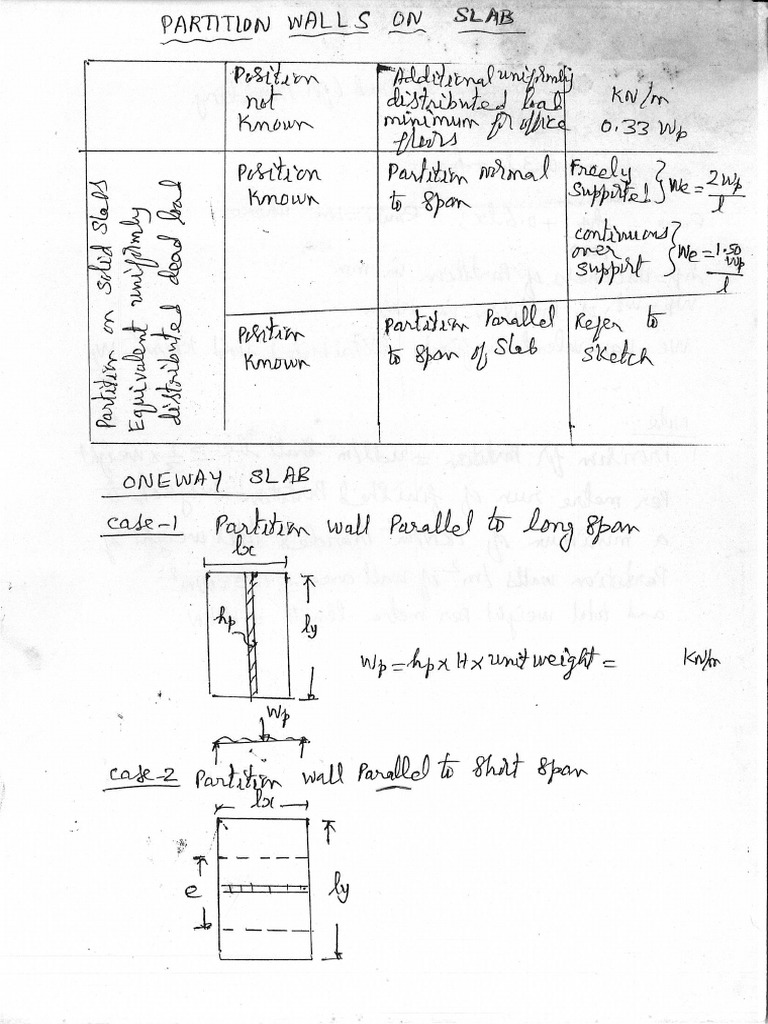 PARTITION WALLS ON SLAB
Position
not
Known
Additional uniformly
distributed load
minimum for office
floors
KN/m
0.33 Wp
Partition on solid slabs
Equivalent uniformly
distributed dead load
Position
Known
Partition normal
to span
Freely
supported } We = 2Wp/l
continuous
over
support } We = 1.50 Wp/l
Position
Known
Partition Parallel
to span of slab
Refer to
sketch
ONEWAY SLAB
case-1 Partition wall Parallel to long span
lx
hp
ly
Wp = hp x H x unit weight = KN/m
Wp
case-2 Partition wall Parallel to short span
lx
e
ly